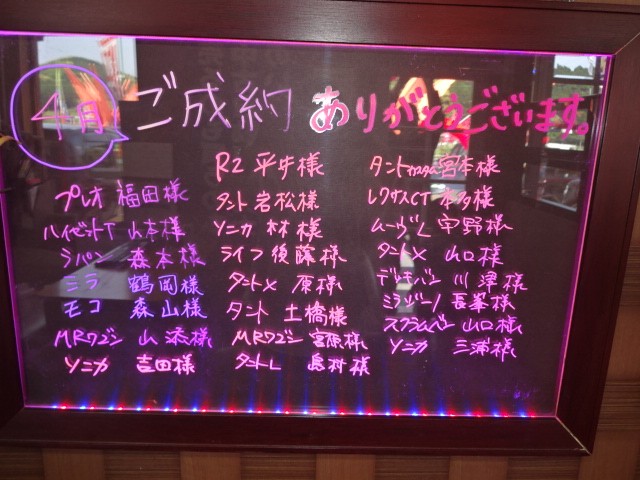 4月 ご成約 ありがとうございます。
プレオ 福田様
ハイゼットT 山本様
ラパン 森本様
ミラ 鶴岡様
モコ 森山様
MRワゴン 山添様
ソニカ 吉田様
R2 平歩様
タント 岩松様
ソニカ 林様
ライフ 後藤様
タントX 原様
タント 土橋様
MRワゴン 宮原様
タントL 島村様
タントカスタム 宮本様
レクサスCT 本多様
ムーヴL 宇野様
タントX 山口様
デリカバン 川澤様
ミラジーノ 長峯様
スクラムバン 山口様
ソニカ 三浦様